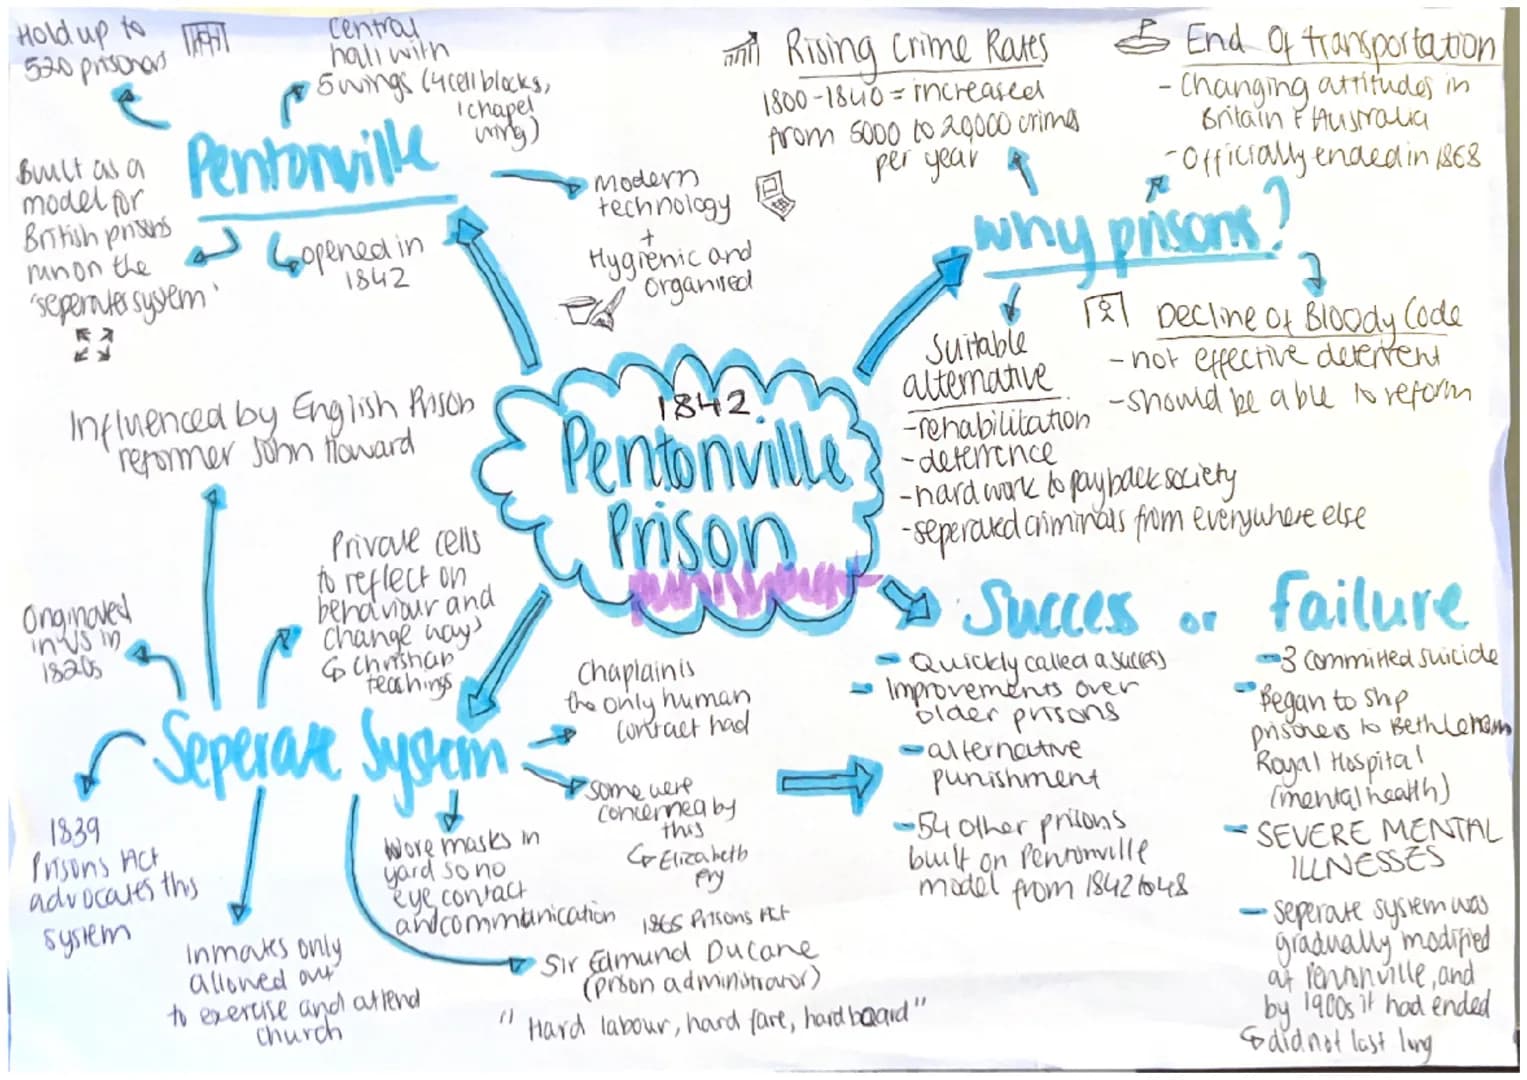 Hold up to
520 prisoners
Central
hall with
5 wings (4 cell blocks,
1 chapel
wing)
Pentonville
Built as a
model for
British prisons
run on the
'seperate system'
opened in
1842
Modern
technology
+
Hygienic and
organised
Rising Crime Rates
1800-1840 = increased
from 5000 to 20,000 crimes
per year
End Of transportation
- Changing attitudes in
Britain & Australia
- Officially ended in 1868
why prisons?
Suitable
alternative
- rehabilitation
- deterrence
- hard work to payback society
- seperated criminals from everywhere else
Decline Of Bloody Code
- not effective deterrent
- should be able to reform
1842
Pentonville
Prison
Influenced by English Prison
reformer John Howard
Private cells
to reflect on
behaviour and
change ways
↳ Christian
teachings
Originated
in US in
1820s
Seperate System
1839
Prisons Act
advocates this
system
Inmates only
allowed out
to exercise and attend
church
Wore masks in
yard so no
eye contact
and communication
Chaplain is
the only human
contact had
some were
concerned by
this
↳ Elizabeth
Fry
1865 Prisons Act
Sir Edmund DuCane
(prison administrator)
"Hard labour, hard fare, hard board"
Success or failure
- Quickly called a success
- Improvements over
older prisons
- alternative
punishment
- 54 other prisons
built on Pentonville
model from 1842 to 48
- 3 committed suicide
- Began to ship
prisoners to Bethlehem
Royal Hospital
(mental health)
- SEVERE MENTAL
ILLNESSES
- seperate system was
gradually modified
at Pentonville, and
by 1900s it had ended
↳ did not last long